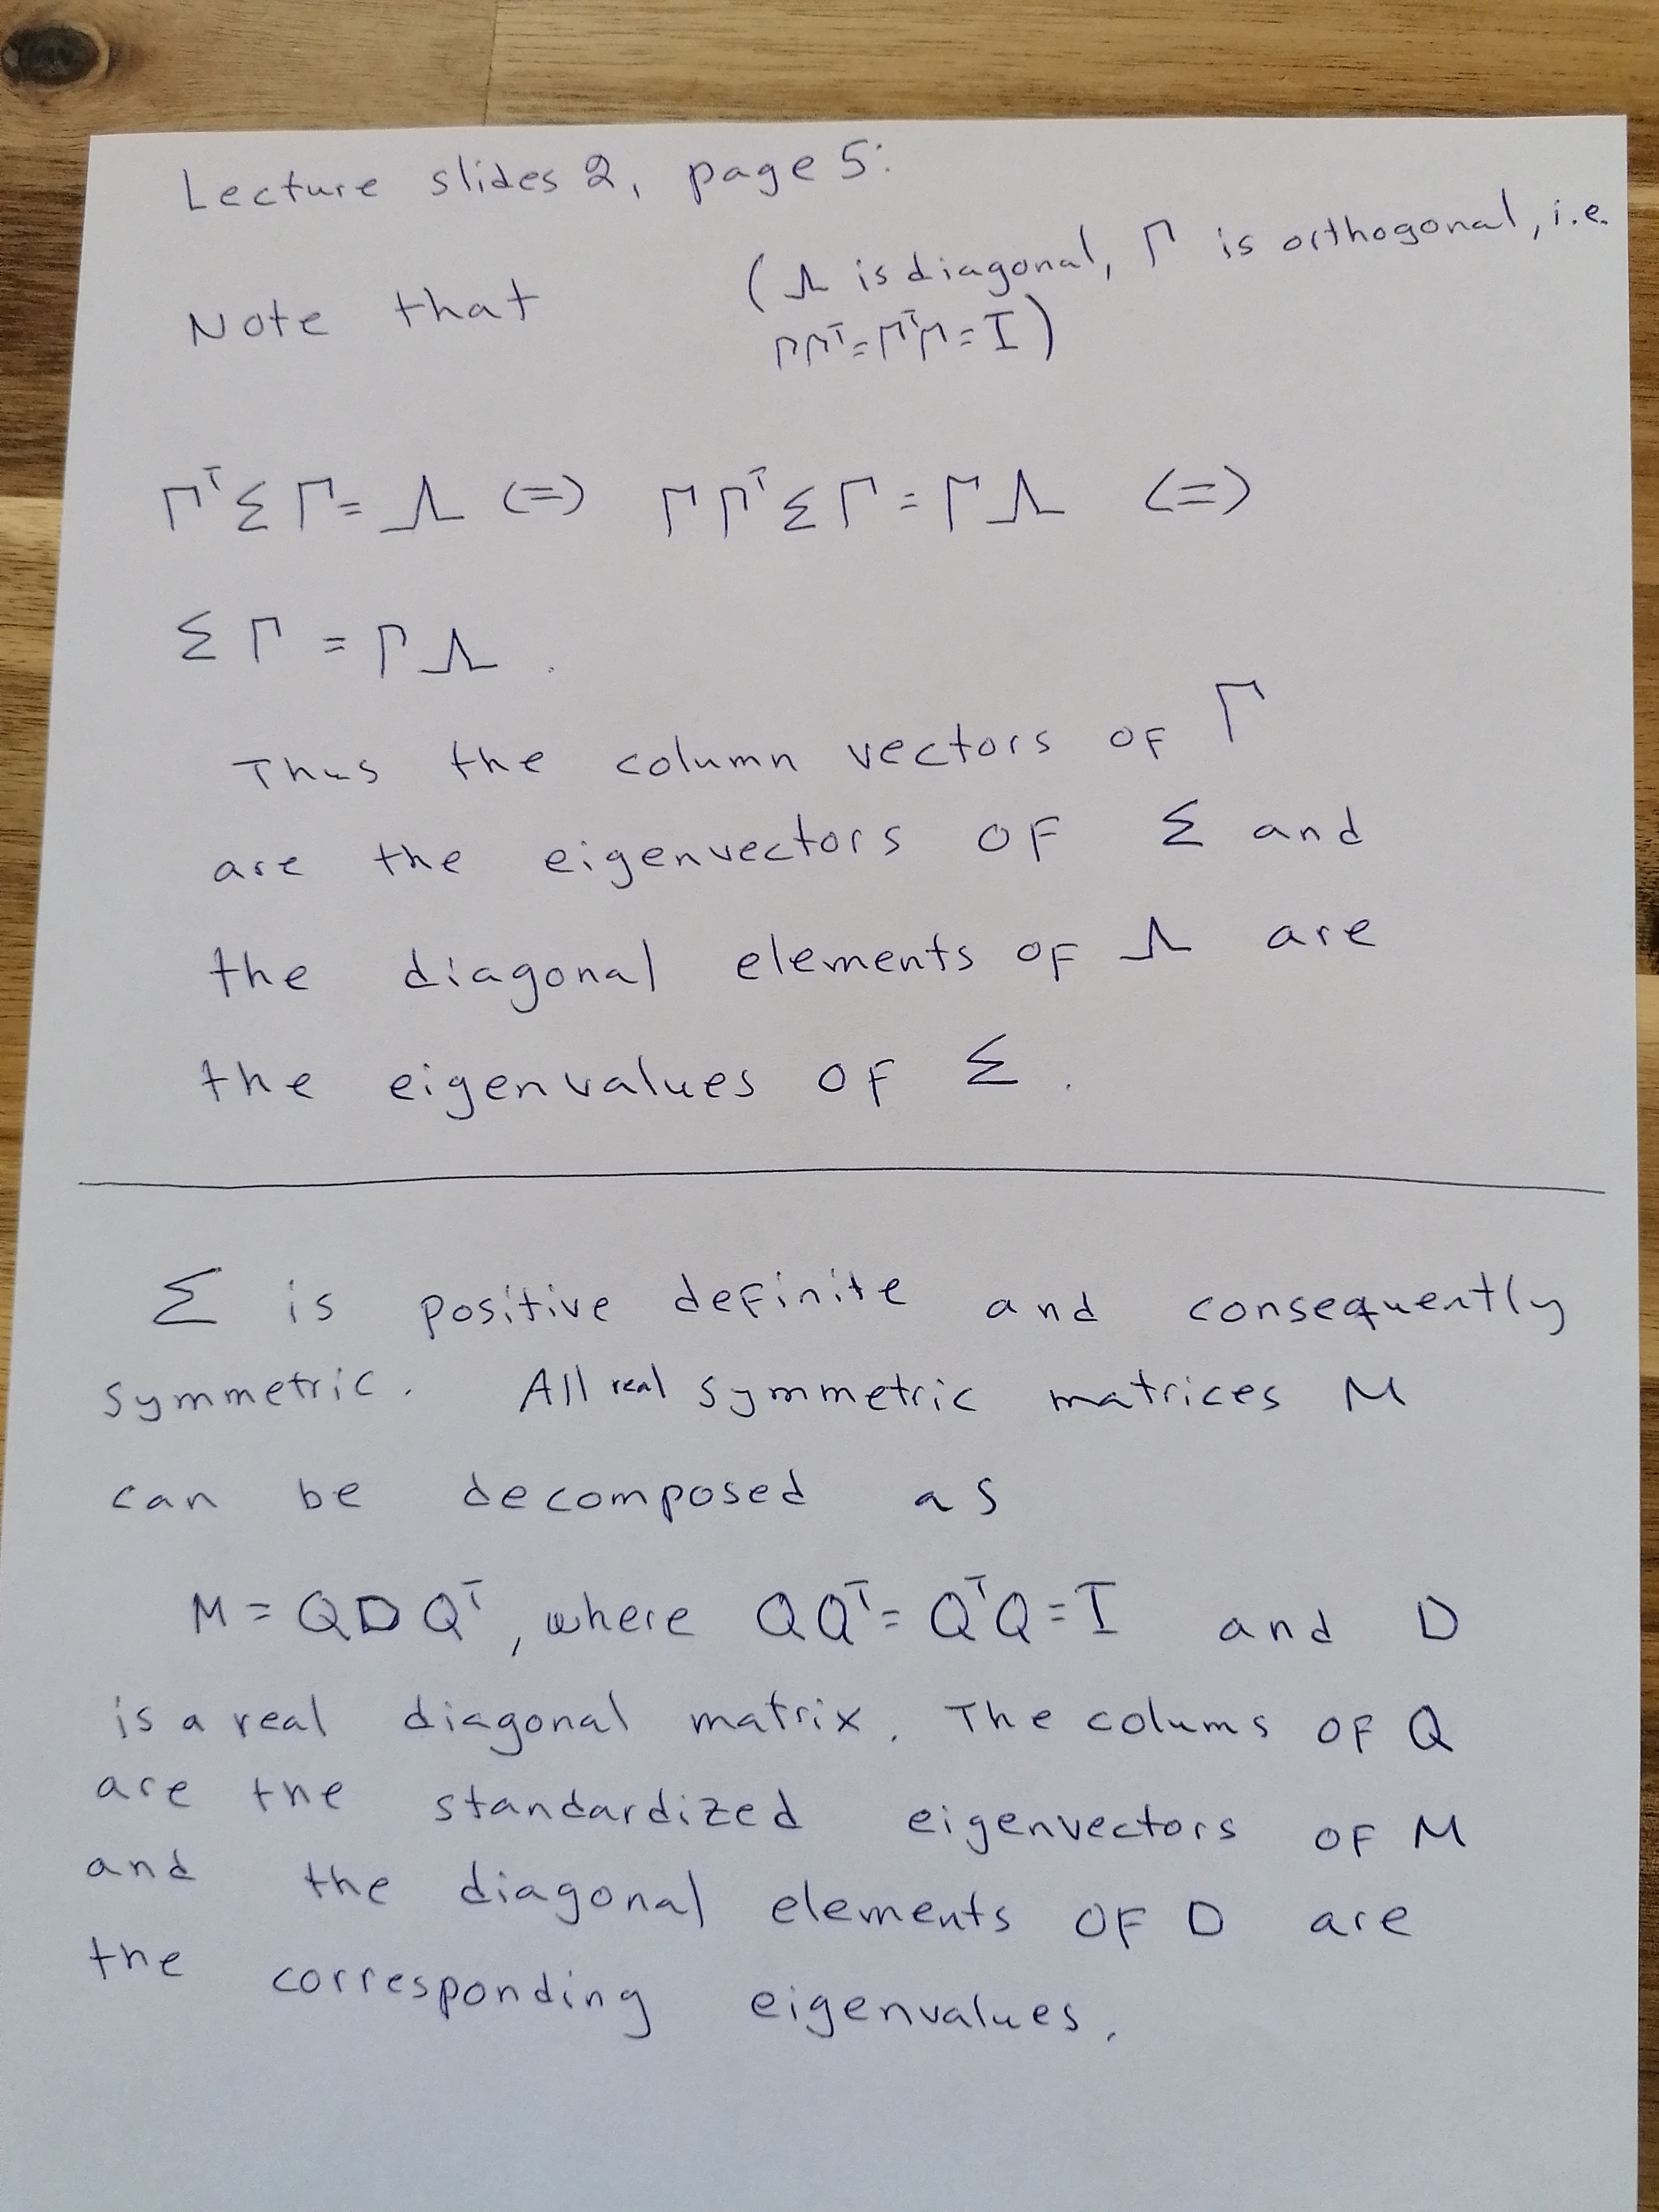 Lecture slides 2, page 5:
Note that (Λ is diagonal, Γ is orthogonal, i.e.
ΓΓᵀ=ΓᵀΓ=I)
ΓᵀΣΓ=Λ (=) ΓΓᵀΣΓ=ΓΛ (=)
ΣΓ=ΓΛ.
Thus the column vectors of Γ
are the eigenvectors of Σ and
the diagonal elements of Λ are
the eigenvalues of Σ.
Σ is positive definite and consequently
symmetric. All real symmetric matrices M
can be decomposed as
M=QDQᵀ, where QQᵀ=QᵀQ=I and D
is a real diagonal matrix. The colums of Q
are the standardized eigenvectors of M
and the diagonal elements of D are
the corresponding eigenvalues.